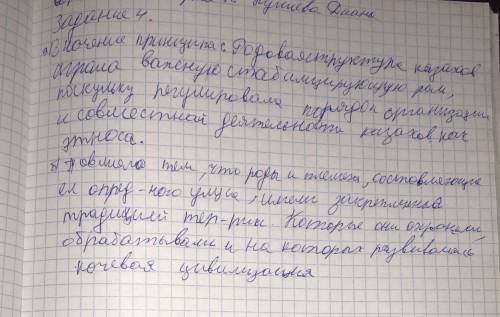 Диана
Задание 4.
а) Значение принципа: Родовая структура казахов
играла важную стабилизирующую роль,
поскульку регулировала порядок организации
и совместной деятельности казахов как
этноса.
б) Повлияло тем, что роды и племена, состовляющие
ел опред-ного улуса, имели закрепление
традицией тер-рии. Которые они охраняли,
обрабатывали и на которых развивалась
кочевая цивилизация